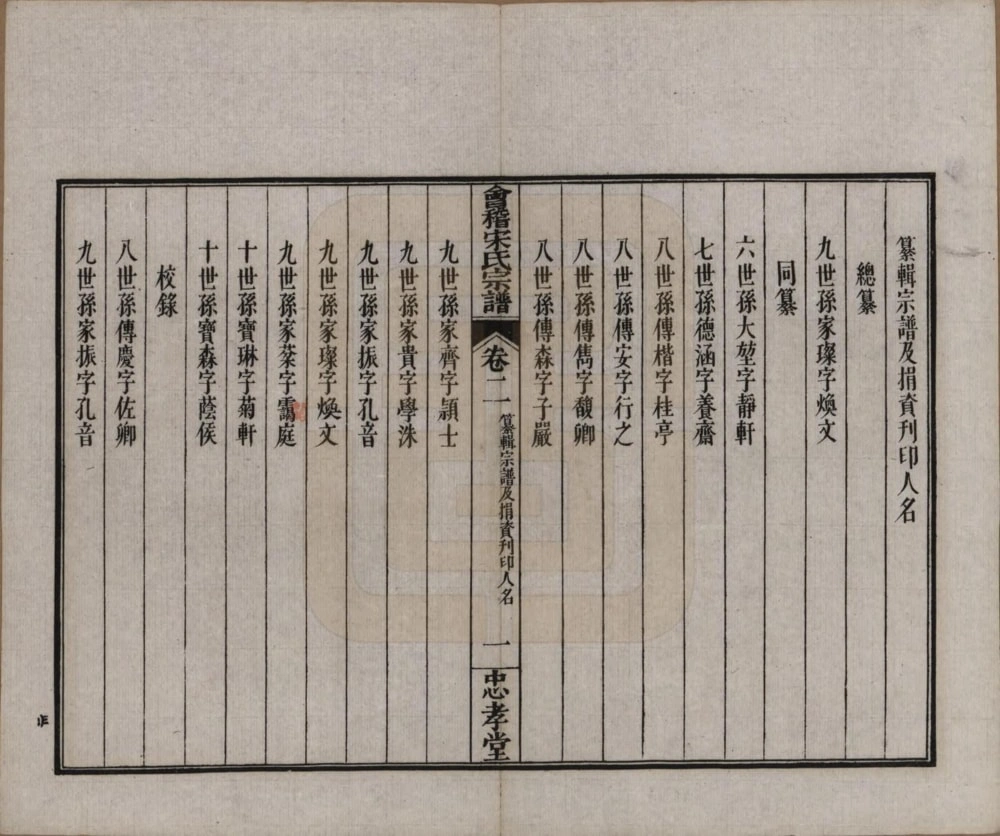 纂輯宗譜及捐資刊印人名
總纂
九世孫家璨字煥文
同纂
六世孫大堃字靜軒
七世孫德涵字養齋
八世孫傳楷字桂亭
八世孫傳安字行之
八世孫傳雋字馥卿
八世孫傳森字子嚴
會稽宋氏宗譜
卷二
纂輯宗譜及捐資刊印人名
一
忠孝堂
九世孫家齊字頴士
九世孫家貴字學洙
九世孫家振字孔音
九世孫家璨字煥文
九世孫家蘂字靄庭
十世孫寶琳字菊軒
十世孫寶森字蔭侯
校錄
八世孫傳慶字佐卿
九世孫家振字孔音